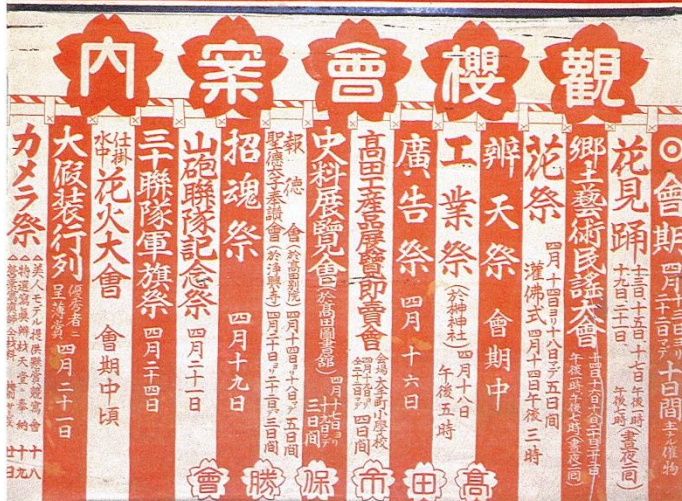 觀櫻會案內
◎會期 四月十三日ヨリ 二十二日マデ 十日間 主ナル催物
花見踊 十三日、十五日、十七日 十九日、二十一日 午後一時 午後七時 (晝夜二回)
鄕土藝術民謠大會 午後一時、午後七時(晝夜二回)
花祭 四月十四日ヨリ十八日マデ五日間 灌佛式 四月十四日午後三時
辨天祭 會期中
工業祭 (於神神社) 四月十八日 午後五時
廣告祭 四月十六日
高田土產品展覽卽賣會 會場 大手町小學校 四日間
史料展覽會 (於高田圖書館) 四月十七日ヨリ 十九日マデ 三日間
報德會 (於高田別院) 四月十四日ヨリ十八日マデ 五日間
聖德太子奉讚會 (於淨興寺) 四月二十日ヨリ二十二日マデ 三日間
招魂祭 四月十九日
山砲聯隊記念祭 四月二十一日
三十聯隊軍旗祭 四月二十四日
仕掛 水中 花火大會 會期中頃
大假裝行列 優秀者ニ 呈薄賞 四月二十一日
カメラ祭 △美人モデル提供懸賞競寫會 十八
高田市保勝會